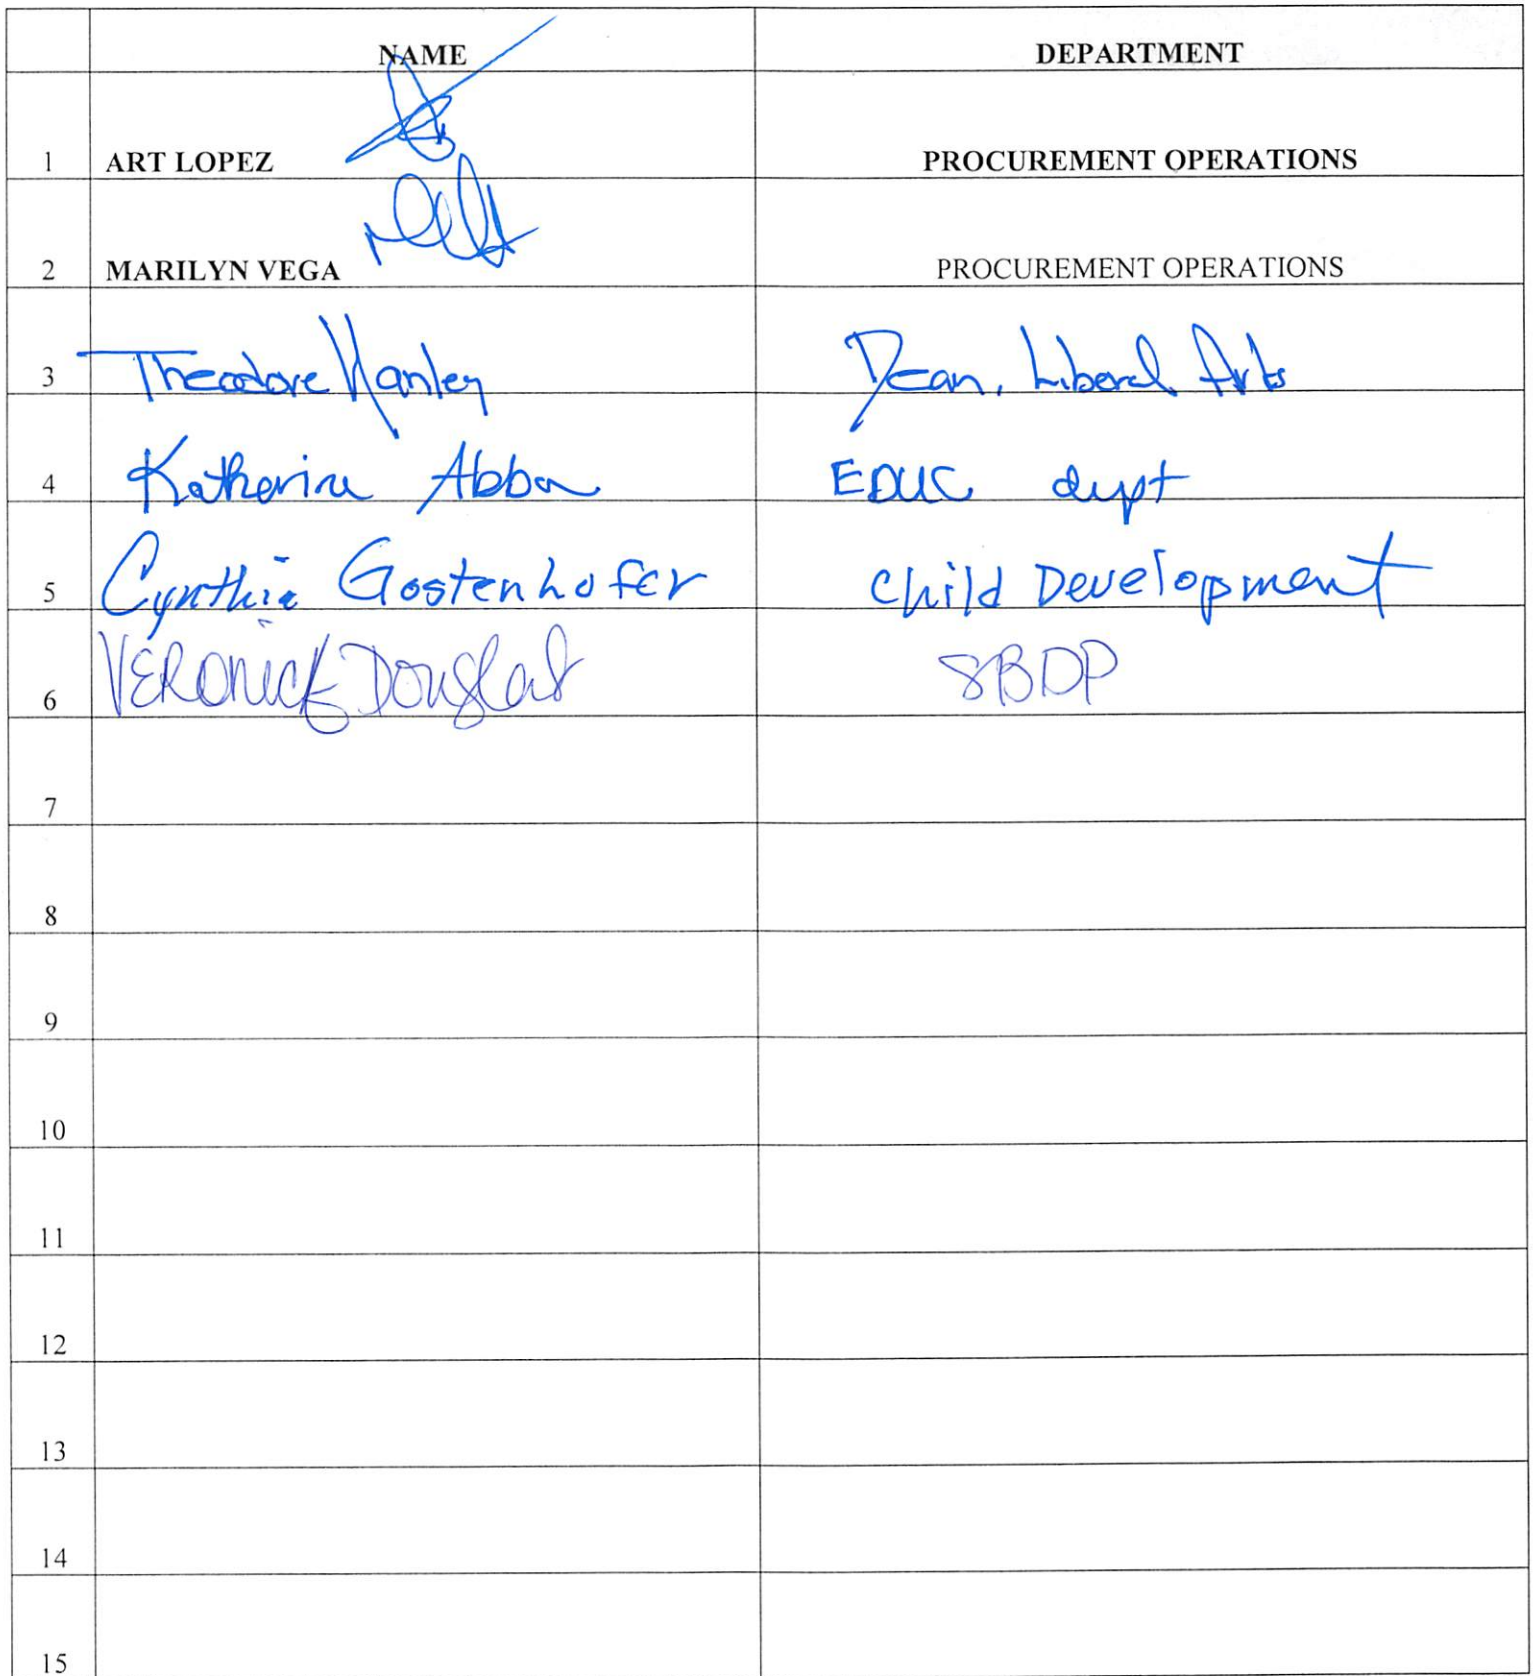 NAME DEPARTMENT
1 ART LOPEZ PROCUREMENT OPERATIONS
2 MARILYN VEGA PROCUREMENT OPERATIONS
3 Theodore Hanley Dean, Liberal Arts
4 Katherine Abba EDUC dept
5 Cynthia Gostenhofer Child Development
6 VERONICA Douglas SBDP
7
8
9
10
11
12
13
14
15